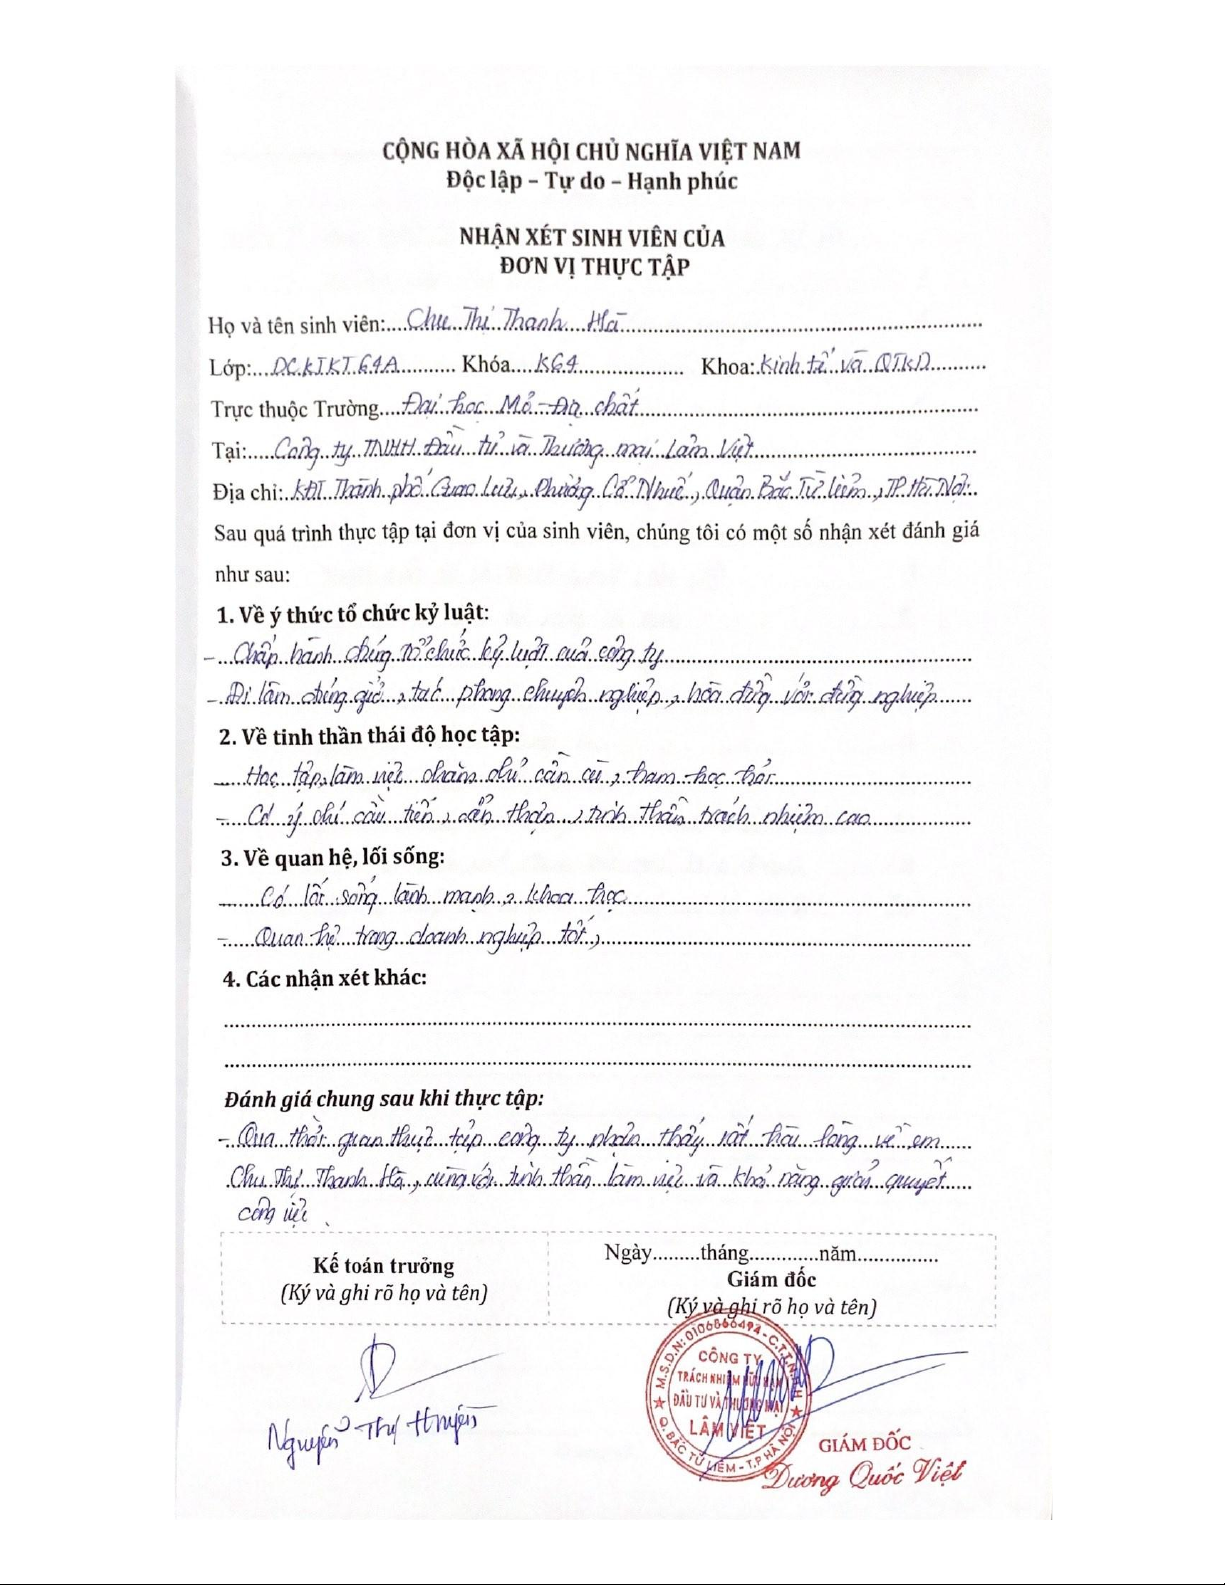 CỘNG HÒA XÃ HỘI CHỦ NGHĨA VIỆT NAM
Độc lập – Tự do – Hạnh phúc
NHẬN XÉT SINH VIÊN CỦA
ĐƠN VỊ THỰC TẬP
Họ và tên sinh viên:....Chu Thị Thanh Hà
Lớp:....DCKTKT64A.......... Khóa....K64.................. Khoa: Kinh tế và QTKD
Trực thuộc Trường....Đại học Mỏ - Địa chất
Tại:.....Công ty TNHH Đầu tư và Thương mại Lâm Việt
Địa chỉ: KĐT Thành phố Giao Lưu, Phường Cổ Nhuế, Quận Bắc Từ Liêm, TP. Hà Nội
Sau quá trình thực tập tại đơn vị của sinh viên, chúng tôi có một số nhận xét đánh giá
như sau:
1. Về ý thức tổ chức kỷ luật:
- Chấp hành đúng tổ chức kỷ luật của công ty
- Đi làm đúng giờ, tác phong chuyên nghiệp, hòa đồng với đồng nghiệp
2. Về tinh thần thái độ học tập:
- Học tập, làm việc chăm chỉ cần cù, ham học hỏi
- Có ý chí cầu tiến, cẩn thận, tinh thần trách nhiệm cao
3. Về quan hệ, lối sống:
- Có lối sống lành mạnh, khoa học
- Quan hệ trong doanh nghiệp tốt,
4. Các nhận xét khác:
Đánh giá chung sau khi thực tập:
- Qua thời gian thực tập công ty nhận thấy rất hài lòng về em
Chu Thị Thanh Hà, cùng với tinh thần làm việc và khả năng giải quyết
công việc.
Ngày.........tháng.............năm...............
Kế toán trưởng
Giám đốc
(Ký và ghi rõ họ và tên)
(Ký và ghi rõ họ và tên)
M.S.D.N: 0106866494 - C.T.T.N.H.H
CÔNG TY
TRÁCH NHIỆM HỮU HẠN
ĐẦU TƯ VÀ THƯƠNG MẠI
LÂM VIỆT
Q. BẮC TỪ LIÊM - T.P HÀ NỘI
Nguyễn Thị Huyền
GIÁM ĐỐC
Dương Quốc Việt